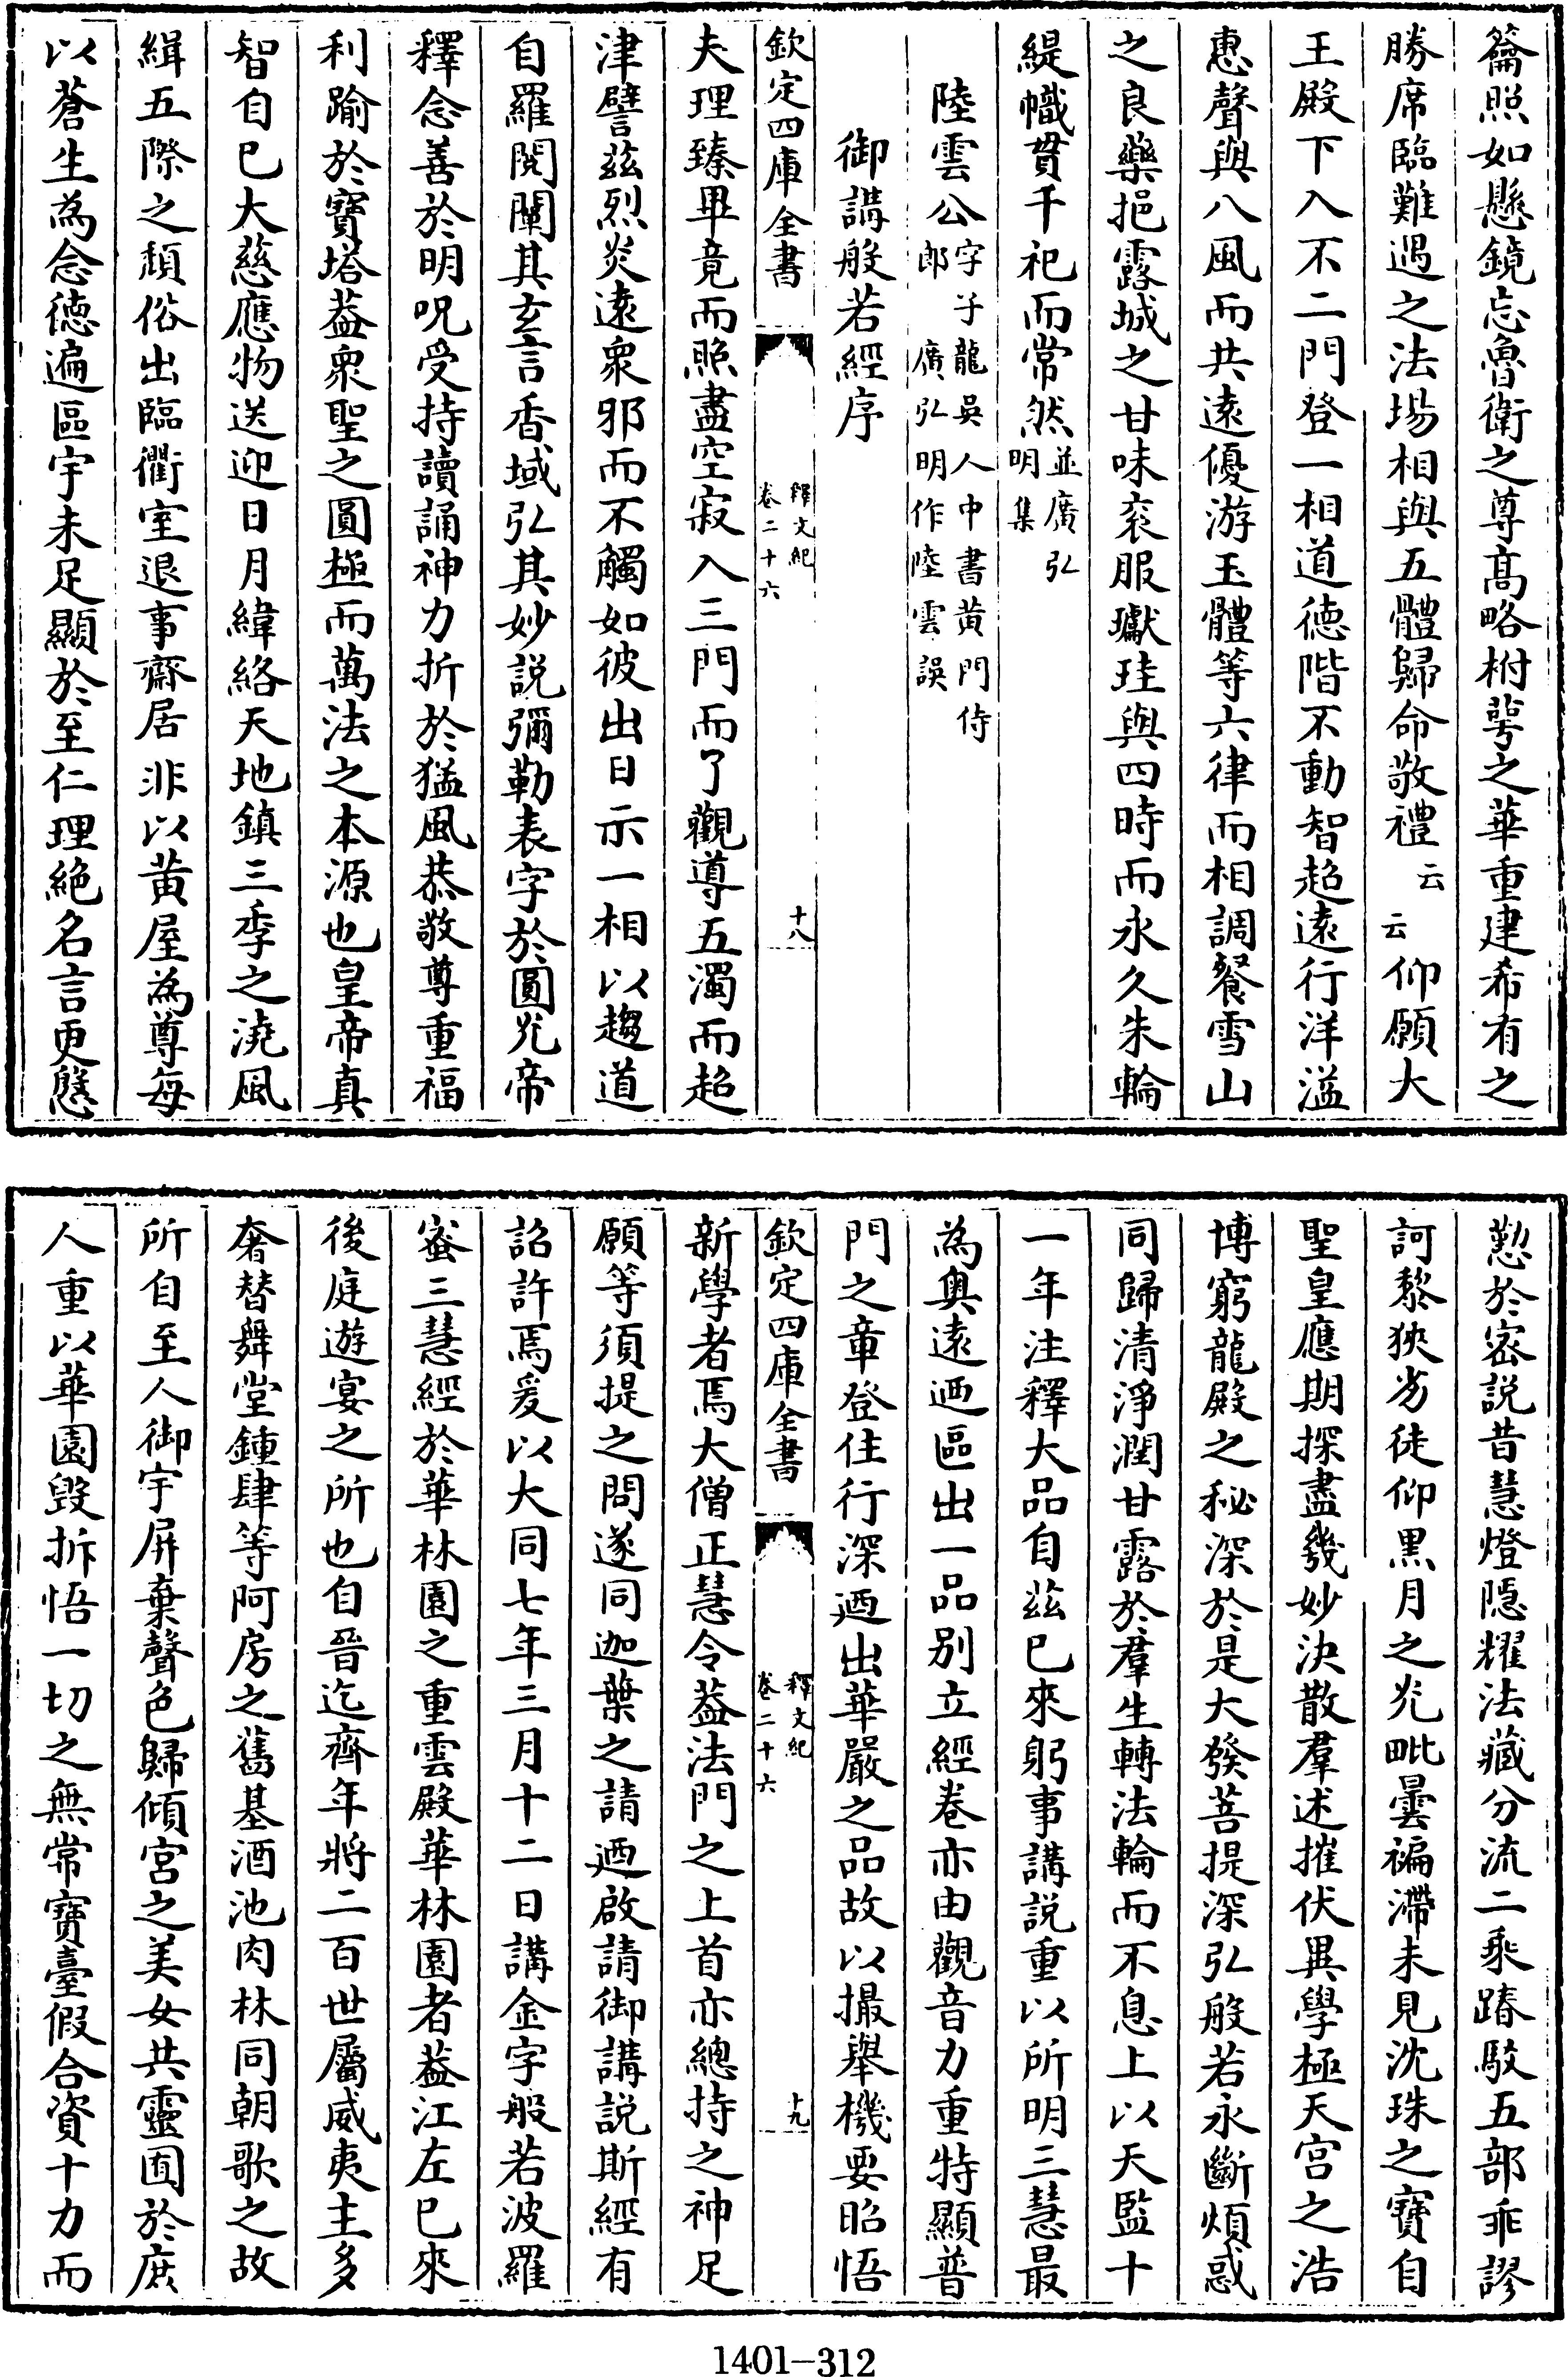 籥照如懸鏡忘魯衛之尊髙略柎蕚之華重建希有之
勝席臨難遇之法場相與五體歸命敬禮云云仰願大
王殿下入不二門登一相道徳階不動智超遠行洋溢
惠聲與八風而共遠優游玉體等六律而相調餐雪山
之良藥挹露城之甘味衮服瓛珪與四時而永久朱輪
緹幟貫千祀而常然並廣弘
明集
陸雲公字子龍吳人中書黄門侍
郎廣弘明作陸雲誤
御講般若經序
欽定四庫全書
釋文紀
卷二十六
十八
夫理臻畢竟而照盡空寂入三門而了觀導五濁而超
津譬茲烈炎遠衆邪而不觸如彼出日示一相以趨道
自羅閲闡其玄言香域弘其妙説彌勒表字於圓光帝
釋念善於明呪受持讀誦神力折於猛風恭敬尊重福
利踰於寳塔葢衆聖之圓極而萬法之本源也皇帝真
智自已大慈應物送迎日月緯絡天地鎮三季之澆風
緝五際之頽俗出臨衢室退事齋居非以黄屋為尊每
以蒼生為念徳遍區宇未足顯於至仁理絶名言更慇
懃於宻説昔慧燈隠耀法藏分流二乘踳駮五部乖謬
訶黎狹劣徒仰黒月之光毗曇褊滯未見沈珠之寳自
聖皇應期探盡幾妙決散羣述摧伏異學極天宫之浩
博窮龍殿之秘深於是大發菩提深弘般若永斷煩惑
同歸清淨潤甘露於羣生轉法輪而不息上以天監十
一年注釋大品自茲已來躬事講説重以所明三慧最
為奥遠迺區出一品别立經卷亦由觀音力重特顯普
門之章登住行深迺出華嚴之品故以撮舉機要昭悟
欽定四庫全書
釋文紀
卷二十六
十九
新學者焉大僧正慧令葢法門之上首亦總持之神足
願等須提之問遂同迦葉之請迺啟請御講説斯經有
詔許焉爰以大同七年三月十二日講金字般若波羅
蜜三慧經於華林園之重雲殿華林園者葢江左已來
後庭遊宴之所也自晉迄齊年將二百世屬威夷主多
奢替舞堂鍾肆等阿房之舊基酒池肉林同朝歌之故
所自至人御宇屏棄聲色歸傾宫之美女共靈囿於庶
人重以華園毁拆悟一切之無常寳臺假合資十力而
1401-312